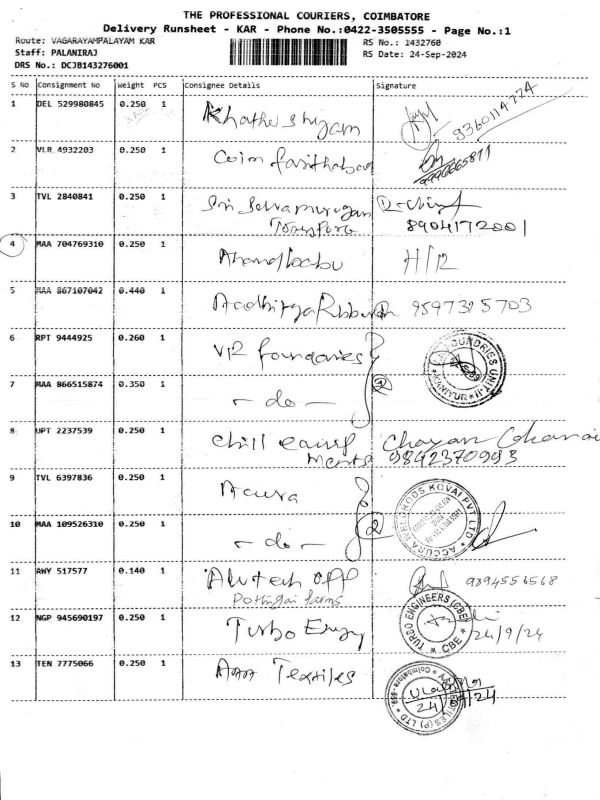 THE PROFESSIONAL COURIERS, COIMBATORE
Delivery Runsheet - KAR - Phone No.:0422-3505555 - Page No.:1
Route: VAGARAYAMPALAYAM KAR
RS No.: 1432760
Staff: PALANIRAJ
RS Date: 24-Sep-2024
DRS No.: DCJB143276001
S NO Consignment No Weight PCS Consignee Details Signature
1 DEL 529980845 0.250 1 Khathu Shyam 9360114774
2 VLR 4932203 0.250 1 Coim
3 TVL 2840841 0.250 1 Sri Selvamurugan
Transport 8904172001
4 MAA 704769310 0.250 1 H/R
5 MAA 867107042 0.440 1 9597325703
6 RPT 9444925 0.260 1 VR foundaries
7 MAA 866515874 0.350 1 - do - 1
8 UPT 2237539 0.250 1 Chill
ments 9842370993
9 TVL 6397836 0.250 1 Acura
ACCURA WELDRODS KOVAI PVT LTD
10 MAA 109526310 0.250 1 - do - 2
11 AWY 517577 0.140 1 Alutech off 9894556568
Pothigai farms
12 NGP 945690197 0.250 1 Turbo Energy
TURBO ENGINEERS (CBE) CBE 24/9/24
13 TEN 7775066 0.250 1 Textiles
24/9/24